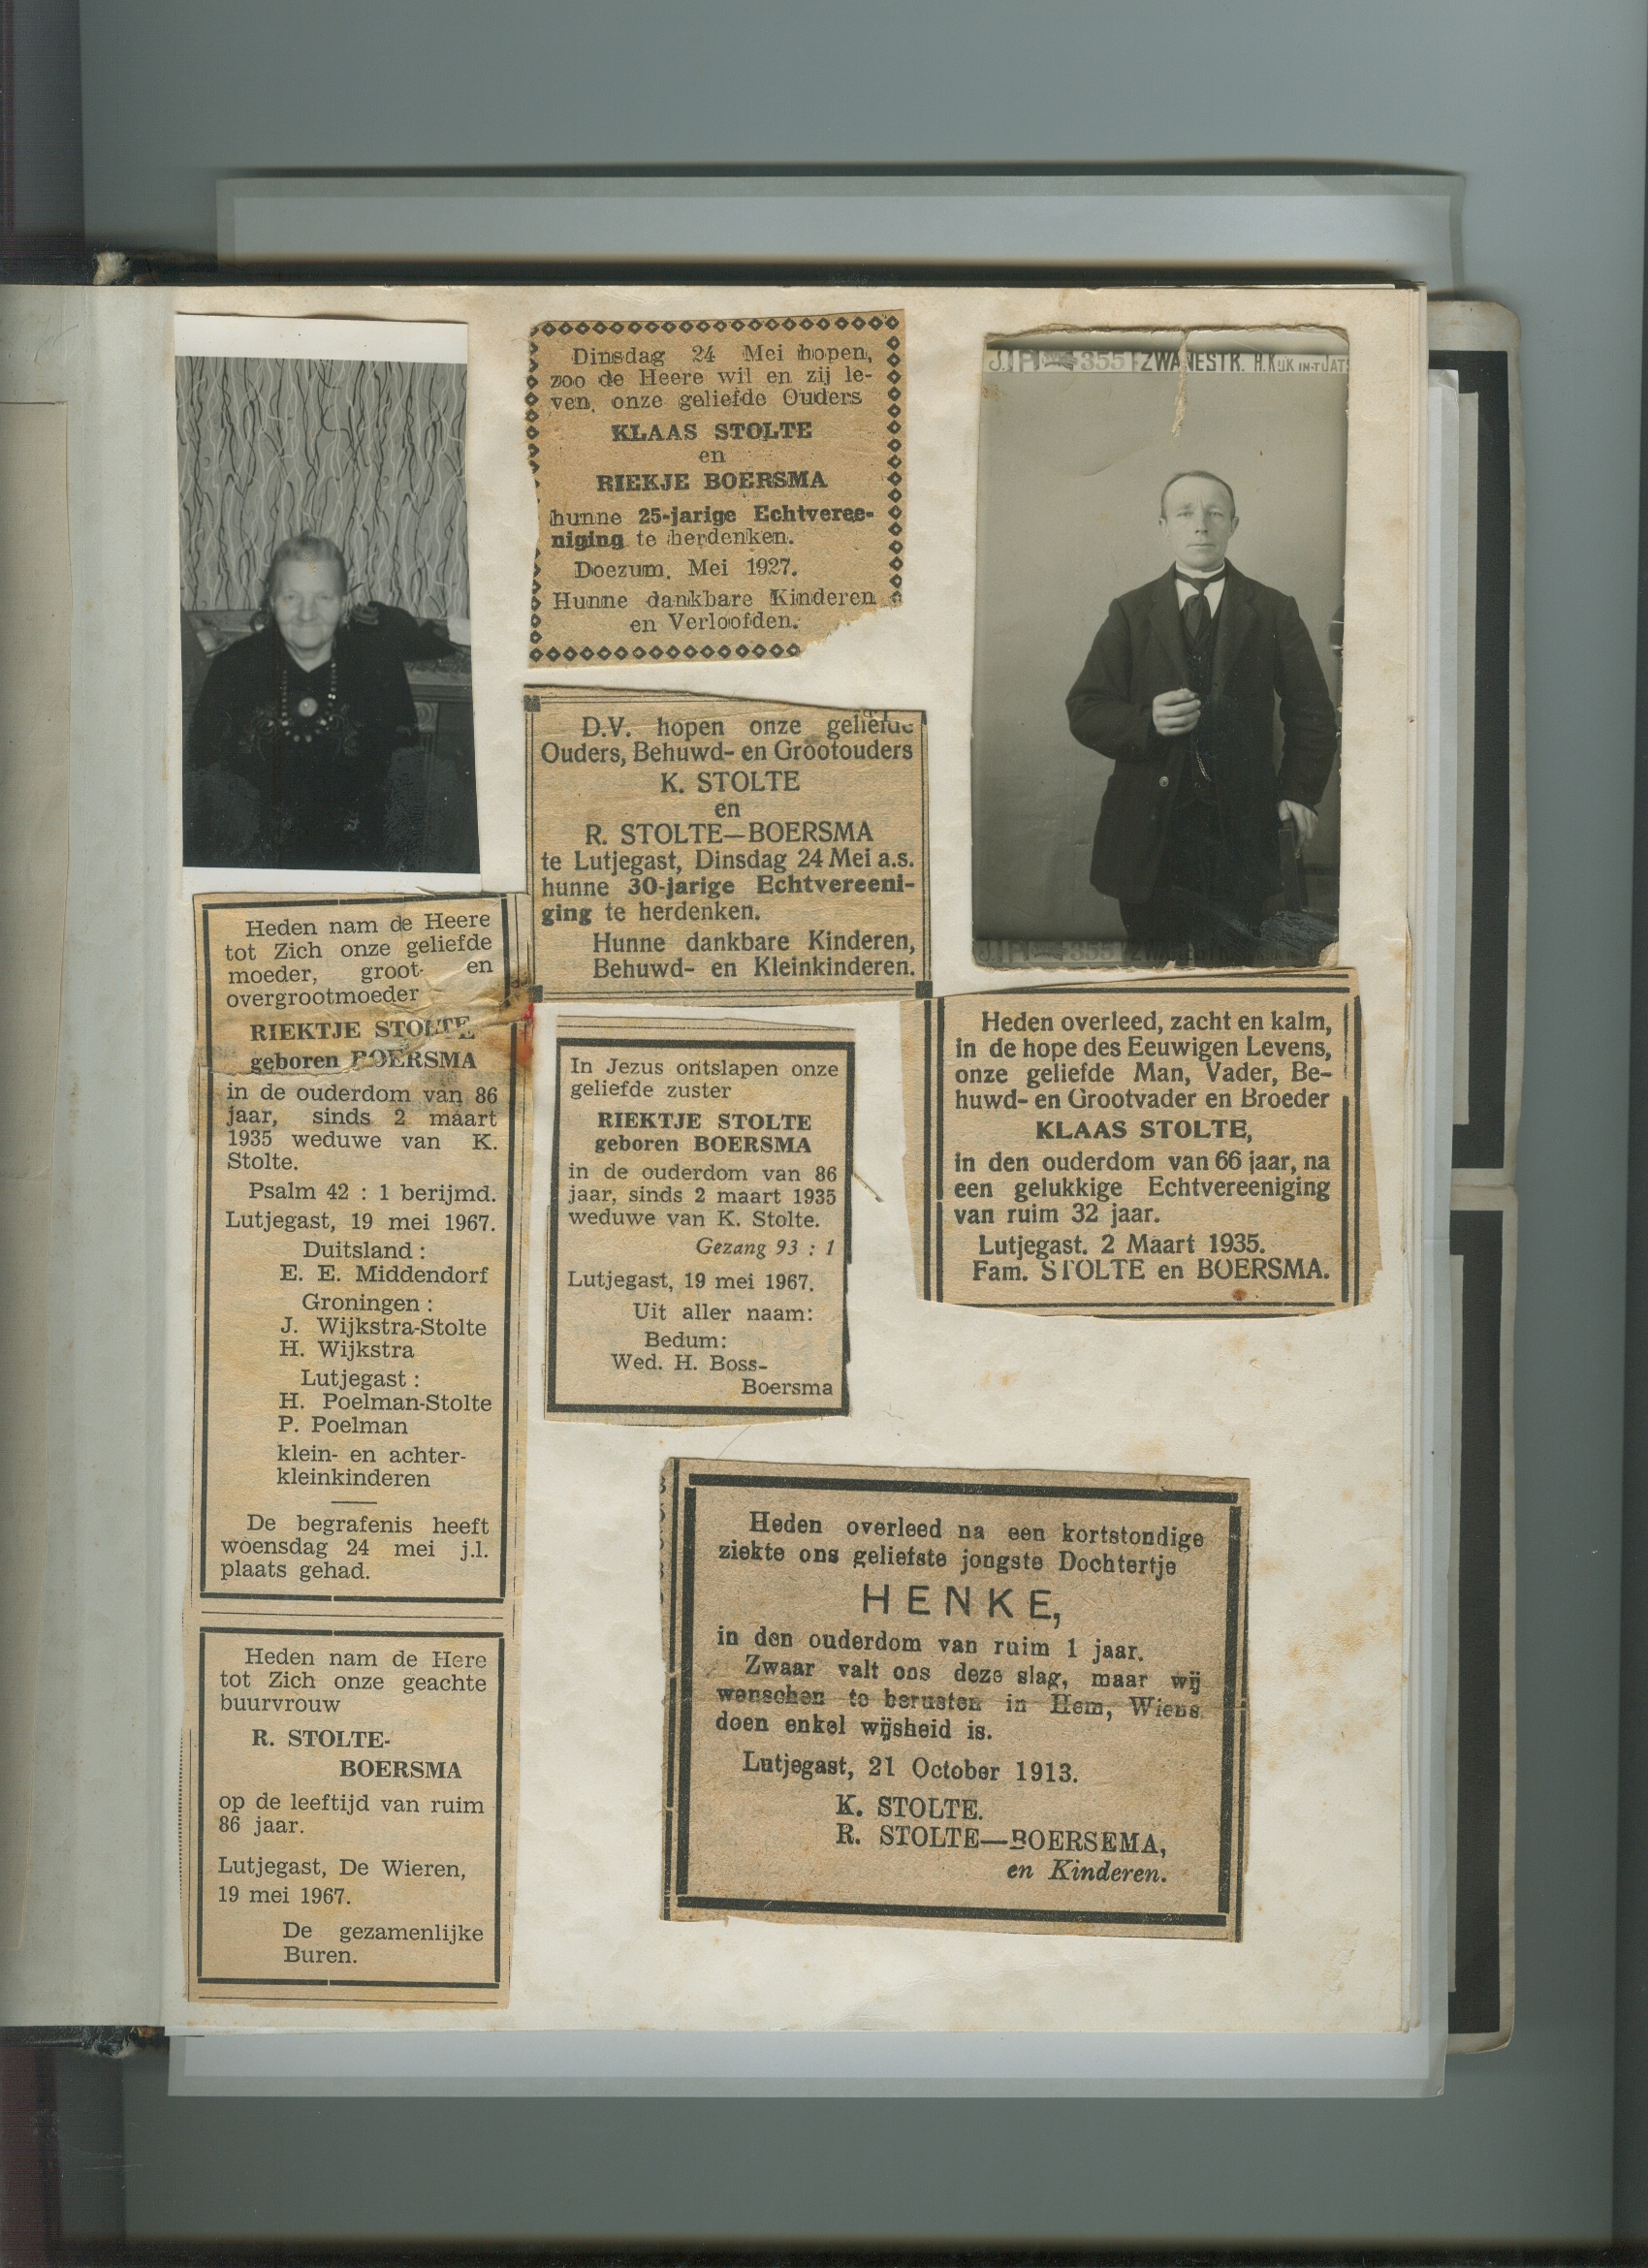 Dinsdag 24 Mei hopen,
zoo de Heere wil en zij le-
ven, onze geliefde Ouders
KLAAS STOLTE
en
RIEKJE BOERSMA
hunne 25-jarige Echtveree-
niging te herdenken.
Doezum, Mei 1927.
Hunne dankbare Kinderen
en Verloofden.
D.V. hopen onze geliefde
Ouders, Behuwd- en Grootouders
K. STOLTE
en
R. STOLTE—BOERSMA
te Lutjegast, Dinsdag 24 Mei a.s.
hunne 30-jarige Echtvereeni-
ging te herdenken.
Hunne dankbare Kinderen,
Behuwd- en Kleinkinderen.
355 ZWANESTR. H.KIJK IN-T JAT
355 ZWANESTR
Heden nam de Heere
tot Zich onze geliefde
moeder, groot- en
overgrootmoeder
RIEKTJE STOLTE
geboren BOERSMA
in de ouderdom van 86
jaar, sinds 2 maart
1935 weduwe van K.
Stolte.
Psalm 42 : 1 berijmd.
Lutjegast, 19 mei 1967.
Duitsland :
E. E. Middendorf
Groningen :
J. Wijkstra-Stolte
H. Wijkstra
Lutjegast :
H. Poelman-Stolte
P. Poelman
klein- en achter-
kleinkinderen
De begrafenis heeft
woensdag 24 mei j.l.
plaats gehad.
Heden nam de Here
tot Zich onze geachte
buurvrouw
R. STOLTE-
BOERSMA
op de leeftijd van ruim
86 jaar.
Lutjegast, De Wieren,
19 mei 1967.
De gezamenlijke
Buren.
In Jezus ontslapen onze
geliefde zuster
RIEKTJE STOLTE
geboren BOERSMA
in de ouderdom van 86
jaar, sinds 2 maart 1935
weduwe van K. Stolte.
Gezang 93 : 1
Lutjegast, 19 mei 1967.
Uit aller naam:
Bedum:
Wed. H. Boss-
Boersma
Heden overleed, zacht en kalm,
in de hope des Eeuwigen Levens,
onze geliefde Man, Vader, Be-
huwd- en Grootvader en Broeder
KLAAS STOLTE,
in den ouderdom van 66 jaar, na
een gelukkige Echtvereeniging
van ruim 32 jaar.
Lutjegast. 2 Maart 1935.
Fam. STOLTE en BOERSMA.
Heden overleed na een kortstondige
ziekte ons geliefste jongste Dochtertje
HENKE,
in den ouderdom van ruim 1 jaar.
Zwaar valt ons deze slag, maar wij
wenschen te berusten in Hem, Wiens
doen enkel wijsheid is.
Lutjegast, 21 October 1913.
K. STOLTE.
R. STOLTE—BOERSEMA,
en Kinderen.